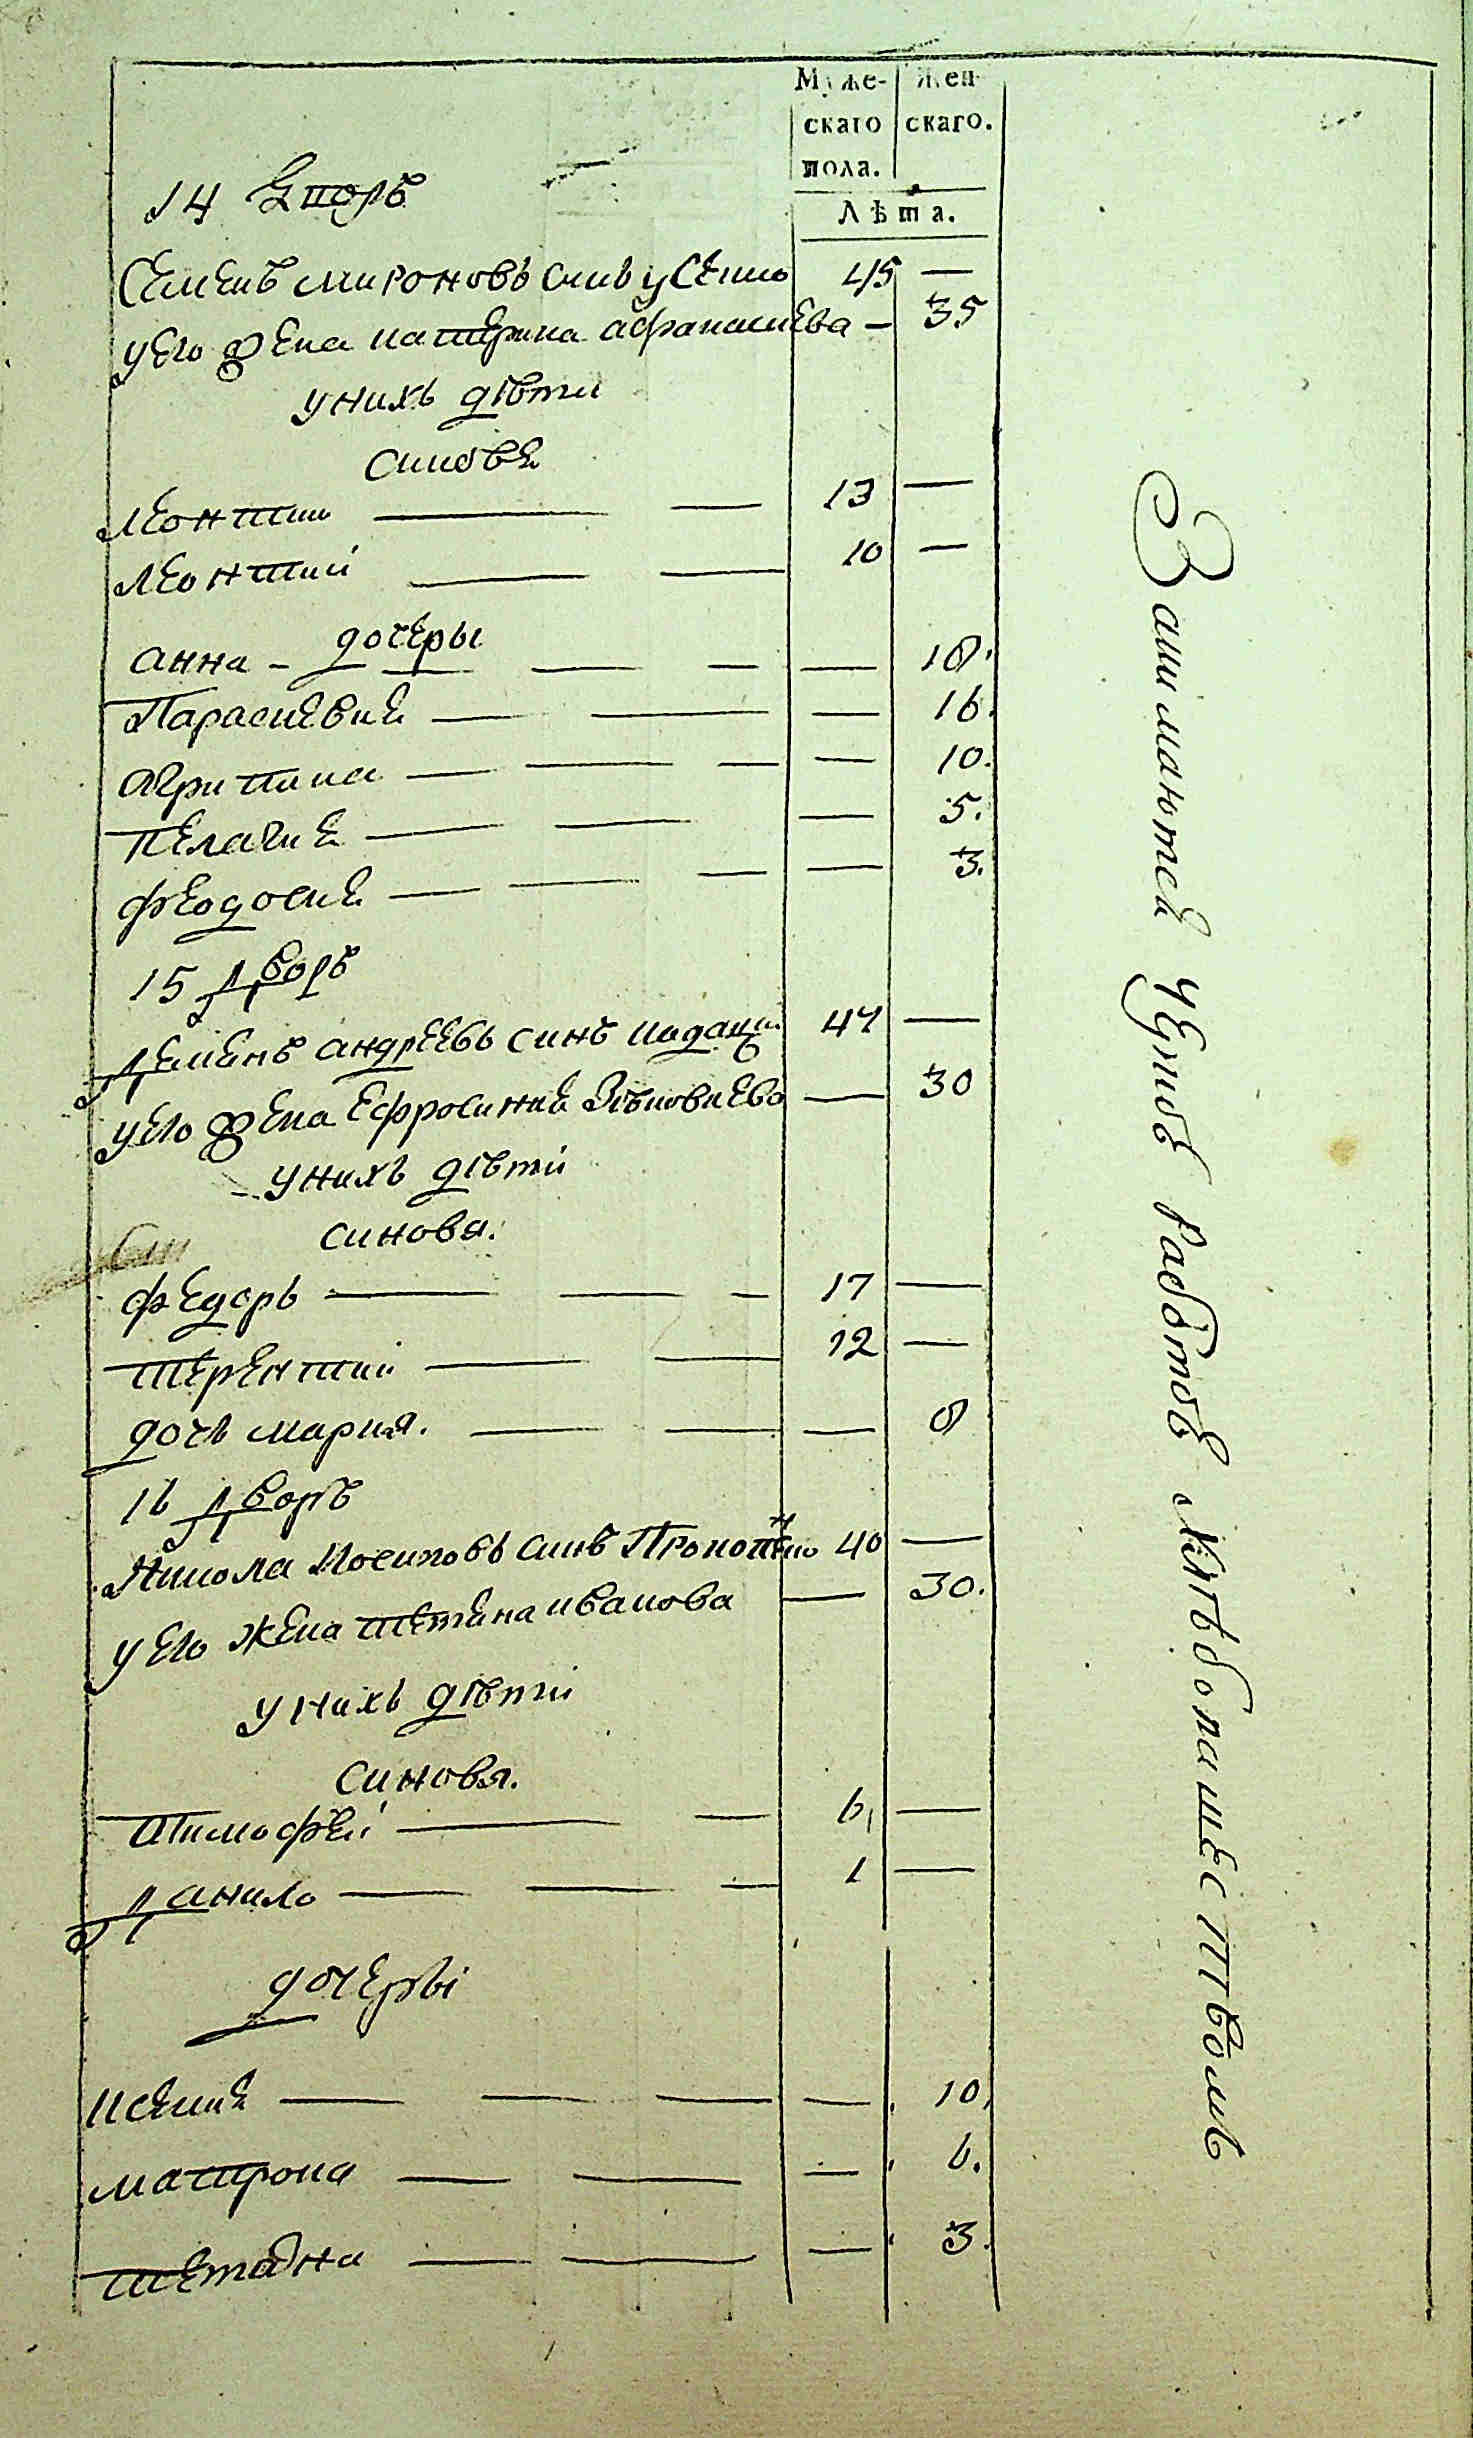 Муже-
скаго
пола.
Жен-
скаго.
Лѣта.
14 Дворъ
Семенъ Мироновъ синъ 45 —
уего жена Катерина Афанасиева — 35
унихъ дѣти
синове
Леонтии 13 —
Леонтий 10 —
дочеры
Анна — 18.
Параскевие — 16.
Агрипина — 10.
Пелагие — 5.
Феодосие — 3.
15 Дворъ
Демянъ Андреевъ синъ 47 —
уего жена Ефросиние — 30
унихъ дѣти
синовя.
Федоръ 17 —
Терентий 12 —
дочь Мария. — 8
16 Дворъ
Никола Йосиповъ синъ 40 —
уего жена Тетяна Иванова — 30.
унихъ дѣти
синовя.
Тимофей 6, —
Данило 1 —
дочеры
Ксение — 10,
Матрона — 6.
Тетяна — 3.
Занимаются работою хлѣбопашествомъ